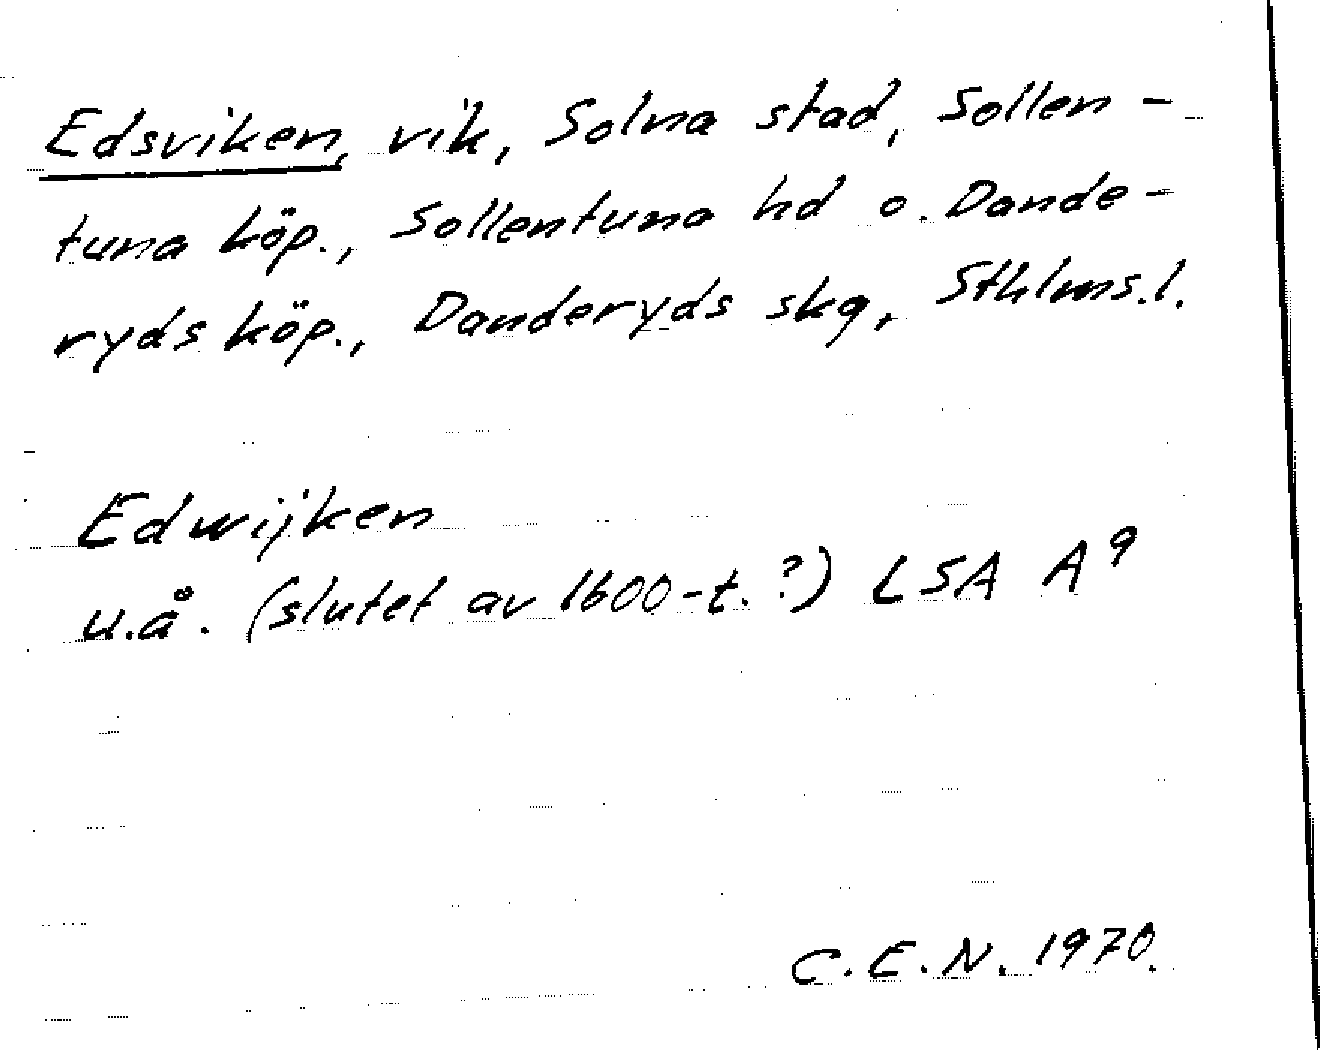 Edsviken, vik, Solna stad, Sollen-
tuna köp., Sollentuna hd o. Dande-
ryds köp., Danderyds skg, Sthlms.l.
Edwijken
u.å. (slutet av 1600-t.?) LSA A⁹
C.E.N. 1970.